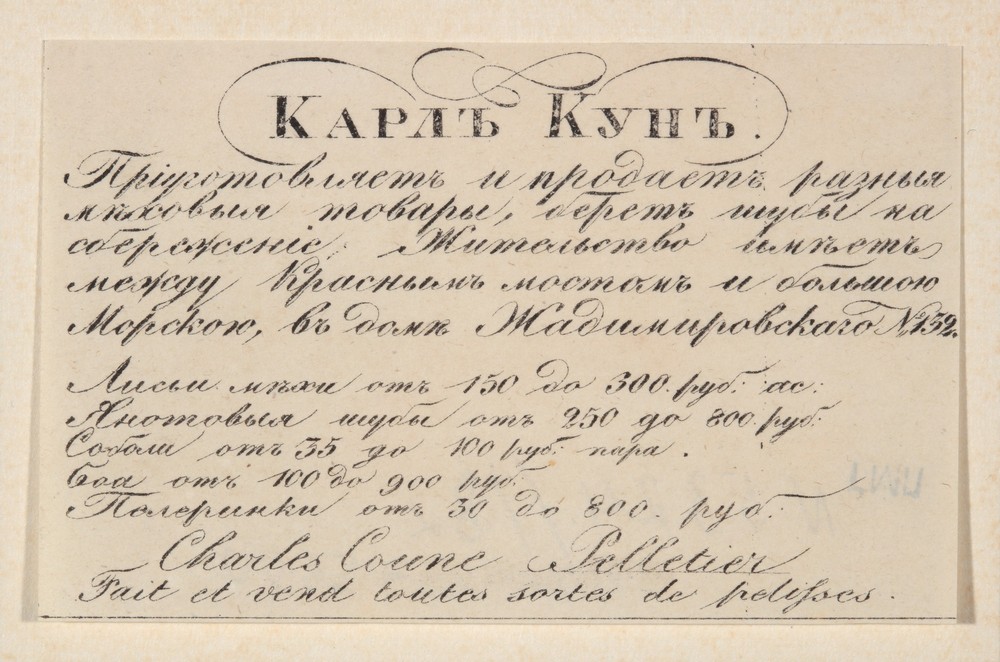 Карлъ Кунъ.
Пріуготовляетъ и продаетъ разныя
мѣховыя товары, беретъ шубы на
сбереженіе. Жительство имѣетъ
между Краснымъ мостомъ и большою
Морскою, въ домѣ Жадимировскаго № 132.
Лисьи мѣхи отъ 150 до 300. руб: ас:
Янотовыя шубы отъ 250 до 800 руб:
Соболи отъ 35 до 100 руб: пара.
Боа отъ 100 до 900 руб:
Полеринки отъ 30 до 800. руб:
Charles Coune Pelletier
Fait et vend toutes sortes de pelisses.